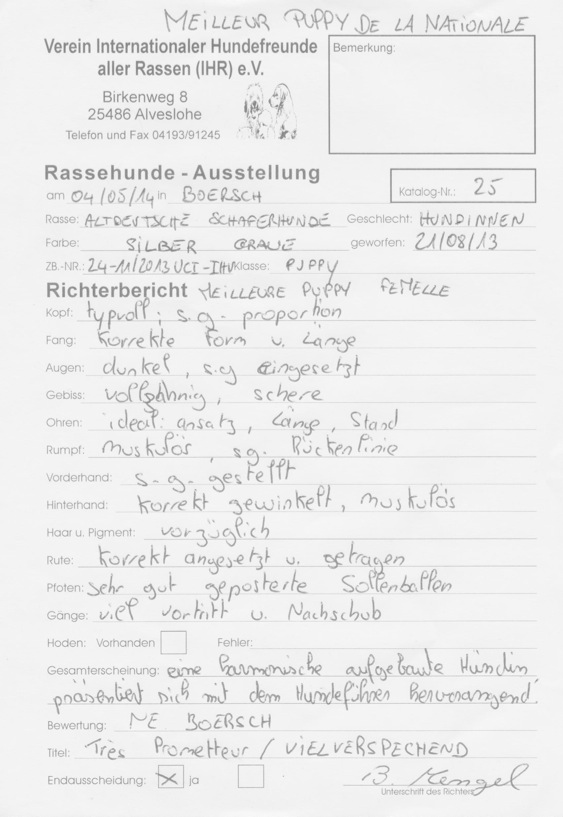 MEILLEUR PUPPY DE LA NATIONALE
Verein Internationaler Hundefreunde
aller Rassen (IHR) e.V.
Birkenweg 8
25486 Alveslohe
Telefon und Fax 04193/91245
Bemerkung:
Rassehunde - Ausstellung
am 04/05/14 in BOERSCH
Katalog-Nr.: 25
Rasse: ALTDEUTSCHE SCHAFERHUNDE Geschlecht: HUNDINNEN
Farbe: SILBER GRAUE geworfen: 21/08/13
ZB.-NR.: 24-11/2013 UCI-IHV Klasse: PUPPY
Richterbericht MEILLEURE PUPPY FEMELLE
Kopf: typvoll; s.g. proportion
Fang: Korrekte Form u. Länge
Augen: dunkel, s.g eingesetzt
Gebiss: vollzahnig, schere
Ohren: ideal: ansatz, Länge, Stand
Rumpf: muskulös, sg. Rückenlinie
Vorderhand: s.g. gestellt
Hinterhand: korrekt gewinkelt, muskulös
Haar u. Pigment: vorzüglich
Rute: korrekt angesetzt u. getragen
Pfoten: Sehr gut geposterte Sollenballen
Gänge: viel vortritt u. Nachschub
Hoden: Vorhanden Fehler:
Gesamterscheinung: eine harmonische aufgebaute Hündin
präsentiert sich mit dem Hundeführer hervorangend.
Bewertung: NE BOERSCH
Titel: Très Prometteur / VIELVERSPECHEND
Endausscheidung: X ja
B. Kengel
Unterschrift des Richters